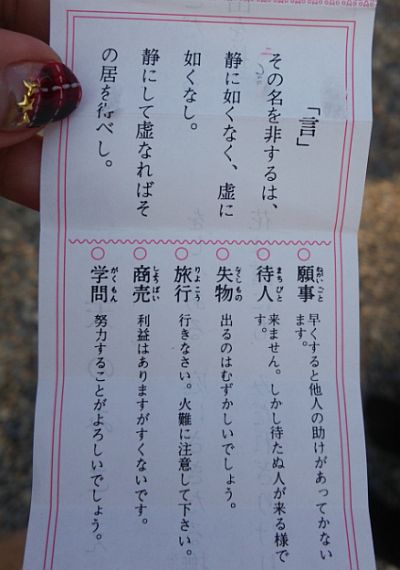 「言」
その名を非するは、
静に如くなく、虚に
如くなし。
静にして虚なればそ
の居を得べし。
○願事 ねがいごと 早くすると他人の助けがあってかない
ます。
○待人 まちびと 来ません。しかし待たぬ人が来る様で
す。
○失物 うしなもの 出るのはむずかしいでしょう。
○旅行 りょこう 行きなさい。火難に注意して下さい。
○商売 しょうばい 利益はありますがすくないです。
○学問 がくもん 努力することがよろしいでしょう。